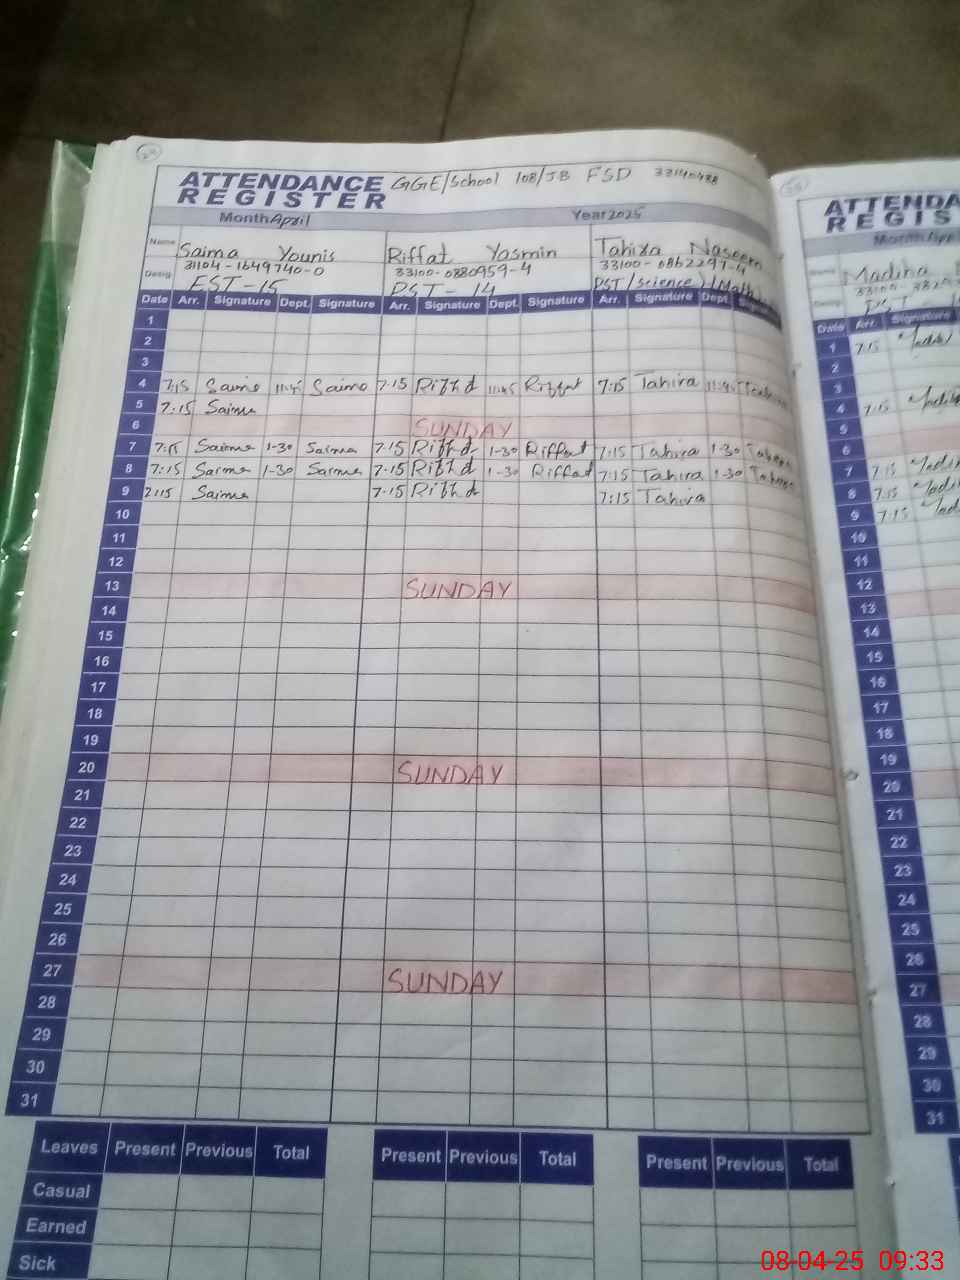 24
ATTENDANCE REGISTER GGE/School 108/JB FSD 33140488
Month April Year 2025
Name Saima Younis Riffat Yasmin Tahira Naseem
31104-1649740-0 33100-0880959-4 33100-0862297-4
Desig. EST-15 PST-14 PST/Science
Date Arr. Signature Dept. Signature Arr. Signature Dept. Signature Arr. Signature Dept.
1
2
3
4 7:15 Saima 11:45 Saima 7:15 Riffat 11:45 Riffat 7:15 Tahira 11:45 Tahira
5 7:15 Saima
6 SUNDAY
7 7:15 Saima 1-30 Saima 7.15 Riffat 1-30 Riffat 7:15 Tahira 1-30 Tahira
8 7:15 Saima 1-30 Saima 7.15 Riffat 1-30 Riffat 7:15 Tahira 1-30 Tahira
9 2:15 Saima 7.15 Riffat 7:15 Tahira
10
11
12
13 SUNDAY
14
15
16
17
18
19
20 SUNDAY
21
22
23
24
25
26
27 SUNDAY
28
29
30
31
Leaves Present Previous Total Present Previous Total Present Previous Total
Casual
Earned
Sick
ATTENDA
REGIS
Month
Madiha
Date Arr. Signature
1 7:15
2
3
4 7:15
5
6
7 7:15
8 7:15
9 7:15
10
11
12
13
14
15
16
17
18
19
20
21
22
23
24
25
26
27
28
29
30
31
08-04-25 09:33